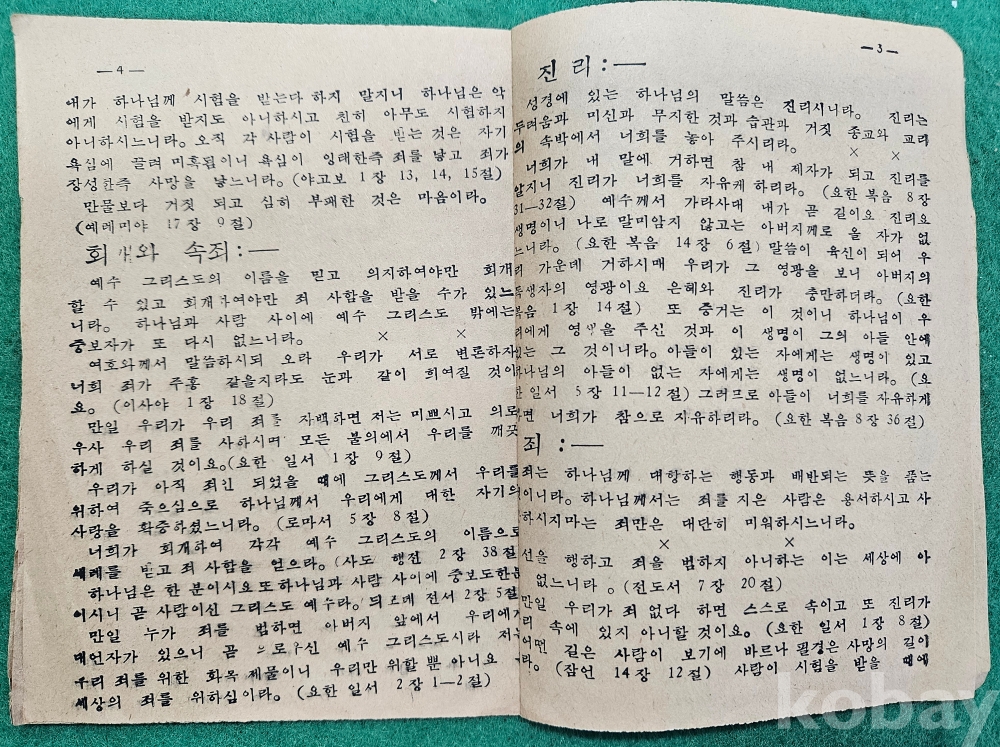 —3—
진 리 : —
성경에 있는 하나님의 말씀은 진리시니라. 진리는
두려움과 미신과 무지한 것과 습관과 거짓 종교와 교리
의 속박에서 너희를 놓아 주시리라. × ×
너희가 내 말에 거하면 참 내 제자가 되고 진리를
알지니 진리가 너희를 자유케 하리라. (요한 복음 8 장
31—32절) 예수께서 가라사대 내가 곧 길이요 진리요
생명이니 나로 말미암지 않고는 아버지께로 올 자가 없
느니라. (요한 복음 14 장 6 절) 말씀이 육신이 되어 우
리 가운데 거하시매 우리가 그 영광을 보니 아버지의
독생자의 영광이요 은혜와 진리가 충만하더라. (요한
복음 1 장 14 절) 또 증거는 이 것이니 하나님이 우
리에게 영생을 주신 것과 이 생명이 그의 아들 안에
있는 그 것이니라. 아들이 있는 자에게는 생명이 있고
하나님의 아들이 없는 자에게는 생명이 없느니라. (요
한 일서 5 장 11—12 절) 그러므로 아들이 너희를 자유하게
하면 너희가 참으로 자유하리라. (요한 복음 8 장 36 절)
죄 : —
죄는 하나님께 대항하는 행동과 배반되는 뜻을 품는
것이니라. 하나님께서는 죄를 지은 사람은 용서하시고 사
하시지마는 죄만은 대단히 미워하시느니라.
× ×
선을 행하고 죄을 범하지 아니하는 이는 세상에 아
없느니라. (전도서 7 장 20 절)
만일 우리가 죄 없다 하면 스스로 속이고 또 진리가
리 속에 있지 아니할 것이요. (요한 일서 1 장 8 절)
어떤 길은 사람이 보기에 바르나 필경은 사망의 길이
라. (잠언 14 장 12 절) 사람이 시험을 받을 때에
—4—
내가 하나님께 시험을 받는다 하지 말지니 하나님은 악
에게 시험을 받지도 아니하시고 친히 아무도 시험하지
아니하시느니라. 오직 각 사람이 시험을 받는 것은 자기
욕심에 끌려 미혹됨이니 욕심이 잉태한즉 죄를 낳고 죄가
장성한즉 사망을 낳느니라. (야고보 1 장 13, 14, 15절)
만물보다 거짓 되고 심히 부패한 것은 마음이라.
(예레미야 17 장 9 절)
회 개와 속죄 : —
예수 그리스도의 이름을 믿고 의지하여야만 회개
할 수 있고 회개하여야만 죄 사함을 받을 수가 있느
니라. 하나님과 사람 사이에 예수 그리스도 밖에는
중보자가 또 다시 없느니라. × ×
여호와께서 말씀하시되 오라 우리가 서로 변론하자
너희 죄가 주홍 같을지라도 눈과 같이 희여질 것이
요. (이사야 1 장 18 절)
만일 우리가 우리 죄를 자백하면 저는 미쁘시고 의로
우사 우리 죄를 사하시며 모든 불의에서 우리를 깨끗
하게 하실 것이요. (요한 일서 1 장 9 절)
우리가 아직 죄인 되었을 때에 그리스도께서 우리를
위하여 죽으심으로 하나님께서 우리에게 대한 자기의
사랑을 확증하셨느니라. (로마서 5 장 8 절)
너희가 회개하여 각각 예수 그리스도의 이름으로
세례를 받고 죄 사함을 얻으라. (사도 행전 2 장 38절
하나님은 한 분이시요 또 하나님과 사람 사이에 중보도 한분
이시니 곧 사람이신 그리스도 예수라. 듸모데 전서 2장 5절
만일 누가 죄를 범하면 아버지 앞에서 우리에게
대언자가 있으니 곧 의로우신 예수 그리스도시라 저는
우리 죄를 위한 화목 제물이니 우리만 위할 뿐 아니요
세상의 죄를 위하심이라. (요한 일서 2 장 1—2 절)
kobay